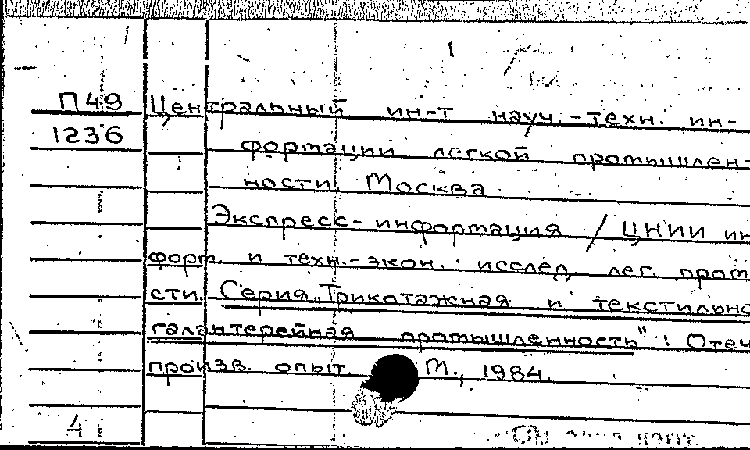 П49 Центральный ин-т науч.-техн. ин-
1236 формации легкой промышлен-
ности. Москва.
Экспресс-информация / ЦНИИ ин
форм. и техн.-экон. исслед. лег. пром
сти. Серия "Трикотажная и текстильно
галантерейная промышленность": Отеч
произв. опыт. М., 1984.
4